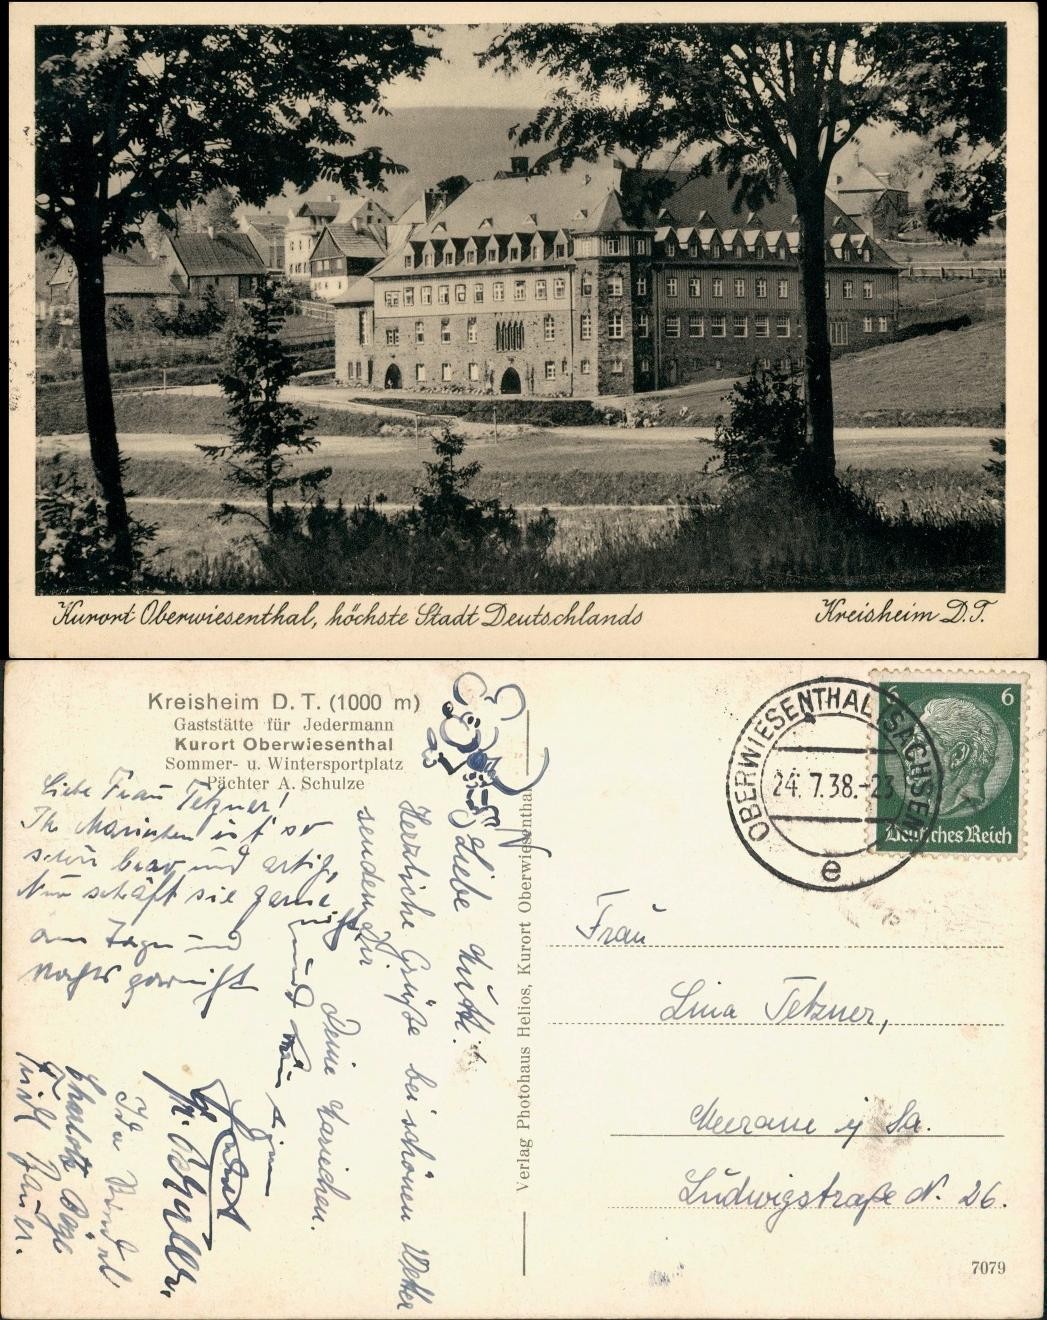 Kurort Oberwiesenthal, höchste Stadt Deutschlands
Kreisheim D.T.
Kreisheim D. T. (1000 m)
Gaststätte für Jedermann
Kurort Oberwiesenthal
Sommer- u. Wintersportplatz
Pächter A. Schulze
Liebe Frau Tetzner!
Ihr Mariechen ist so
schön brav und artig,
Nun schläft sie gerne
am Tage und
Nachts
Liebe Mutti!
Herzliche Grüße bei schönem Wetter
senden Dir
Deine Mariechen.
und
Verlag Photohaus Helios, Kurort Oberwiesenthal
OBERWIESENTHAL (SACHSEN)
24. 7.38.-23
e
6 6
Deutsches Reich
Frau
Lina Tetzner,
Meerane i/ Sa.
Ludwigstraße N. 26.
7079